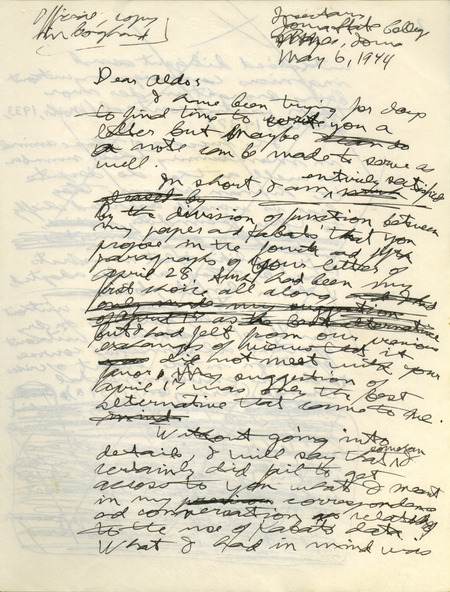 Office copy
Iowa State College
Ames, Iowa
May 6, 1944
Dear Aldo:
I have been trying for days
to find time to write you a
letter but maybe
a note can be made to serve as
well.
In short, I am entirely satisfied
pleased by
by the division of function between
my paper and Kabat's that you
propose in the fourth
paragraphs of your letter of
April 28. That had been my
first choice all along,
but I had felt from our previous
exchanges of views that it
did not meet with your
favor. My suggestion of
April 17 was the best
alternative that came to me.
mind.
Without going into
details, I will say that I
certainly did fail to get
across to you what I meant
in my correspondence
and conversation as relating
to the use of Kabat's data.
What I had in mind was